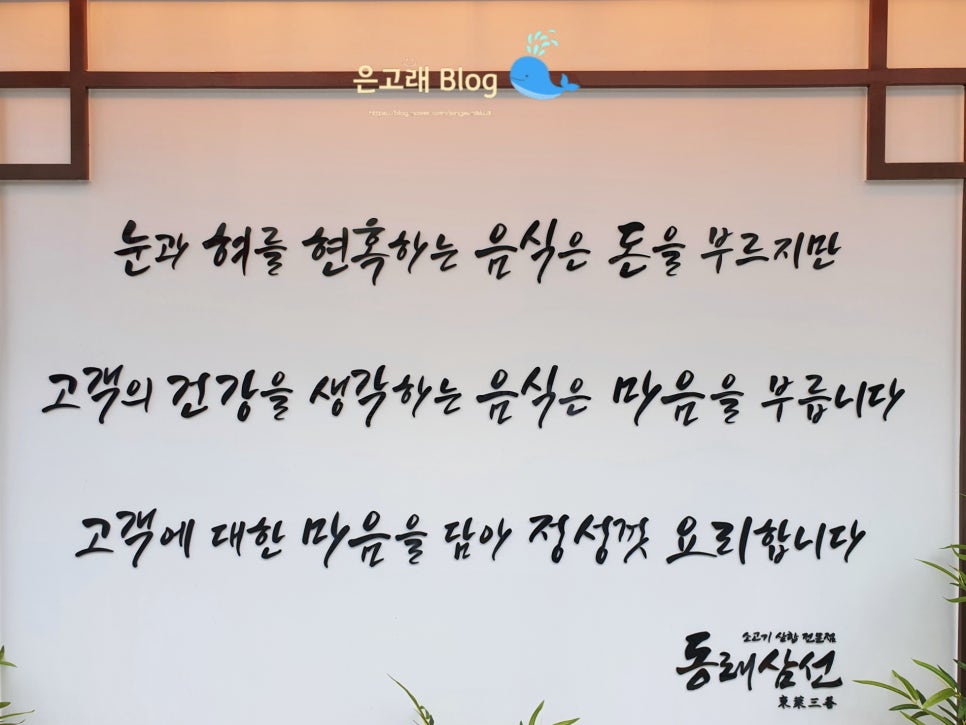 은고래 Blog
눈과 혀를 현혹하는 음식은 돈을 부르지만
고객의 건강을 생각하는 음식은 마음을 부릅니다
고객에 대한 마음을 담아 정성껏 요리합니다
소고기 삼합 전문점
동래삼선
東萊三